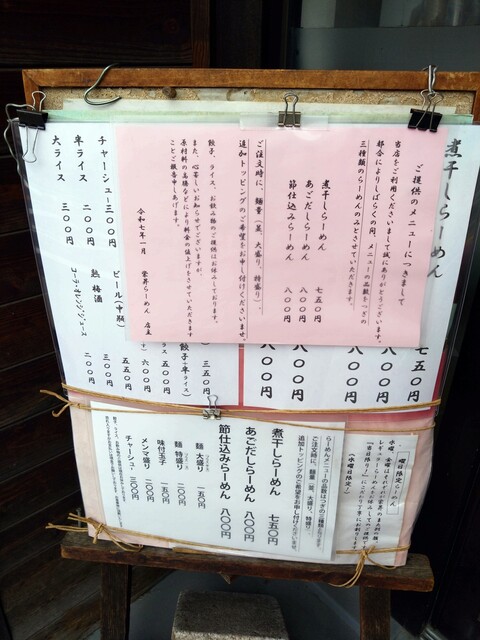 ご提供のメニューにつきまして
当店をご利用くださいまして誠にありがとうございます。
都合によりしばらくの間、メニューの品数をつぎの
三種類のらーめんのみとさせていただきます。
煮干しらーめん 七五〇円
あごだしらーめん 八〇〇円
節仕込みらーめん 八〇〇円
ご注文時に、麺量（並、大盛り、特盛り）、
追加トッピングのご希望をお申し付けくださいませ。
餃子、ライス、お飲み物のご提供はお休みしております。
また、心苦しいお知らせでございますが、
原材料の高騰などにより料金の値上げをさせていただきます
ことご報告申しあげます。
令和七年一月
栄昇らーめん 店主
煮干しらーめん
七五〇円
八〇〇円
八〇〇円
八〇〇円
八〇〇円
チャーシュー 三〇〇円
半ライス 二〇〇円
大ライス 三〇〇円
三五〇円
餃子＋半ライス
六〇〇円
ビール（中瓶）
五五〇円
梅酒 三〇〇円
コーラ・オレンジジュース 二〇〇円
曜日限定らーめん
（水曜限定）
らーめんメニューの品数はつぎの三種類でございます。
ご注文時に、麺量（並、大盛り、特盛り）、
追加トッピングのご希望をお申し付けくださいませ。
煮干しらーめん 七五〇円
あごだしらーめん 八〇〇円
節仕込みらーめん 八〇〇円
麺 大盛り 一五〇円
麺 特盛り 二〇〇円
味付玉子 一五〇円
メンマ盛り 二〇〇円
チャーシュー 三〇〇円